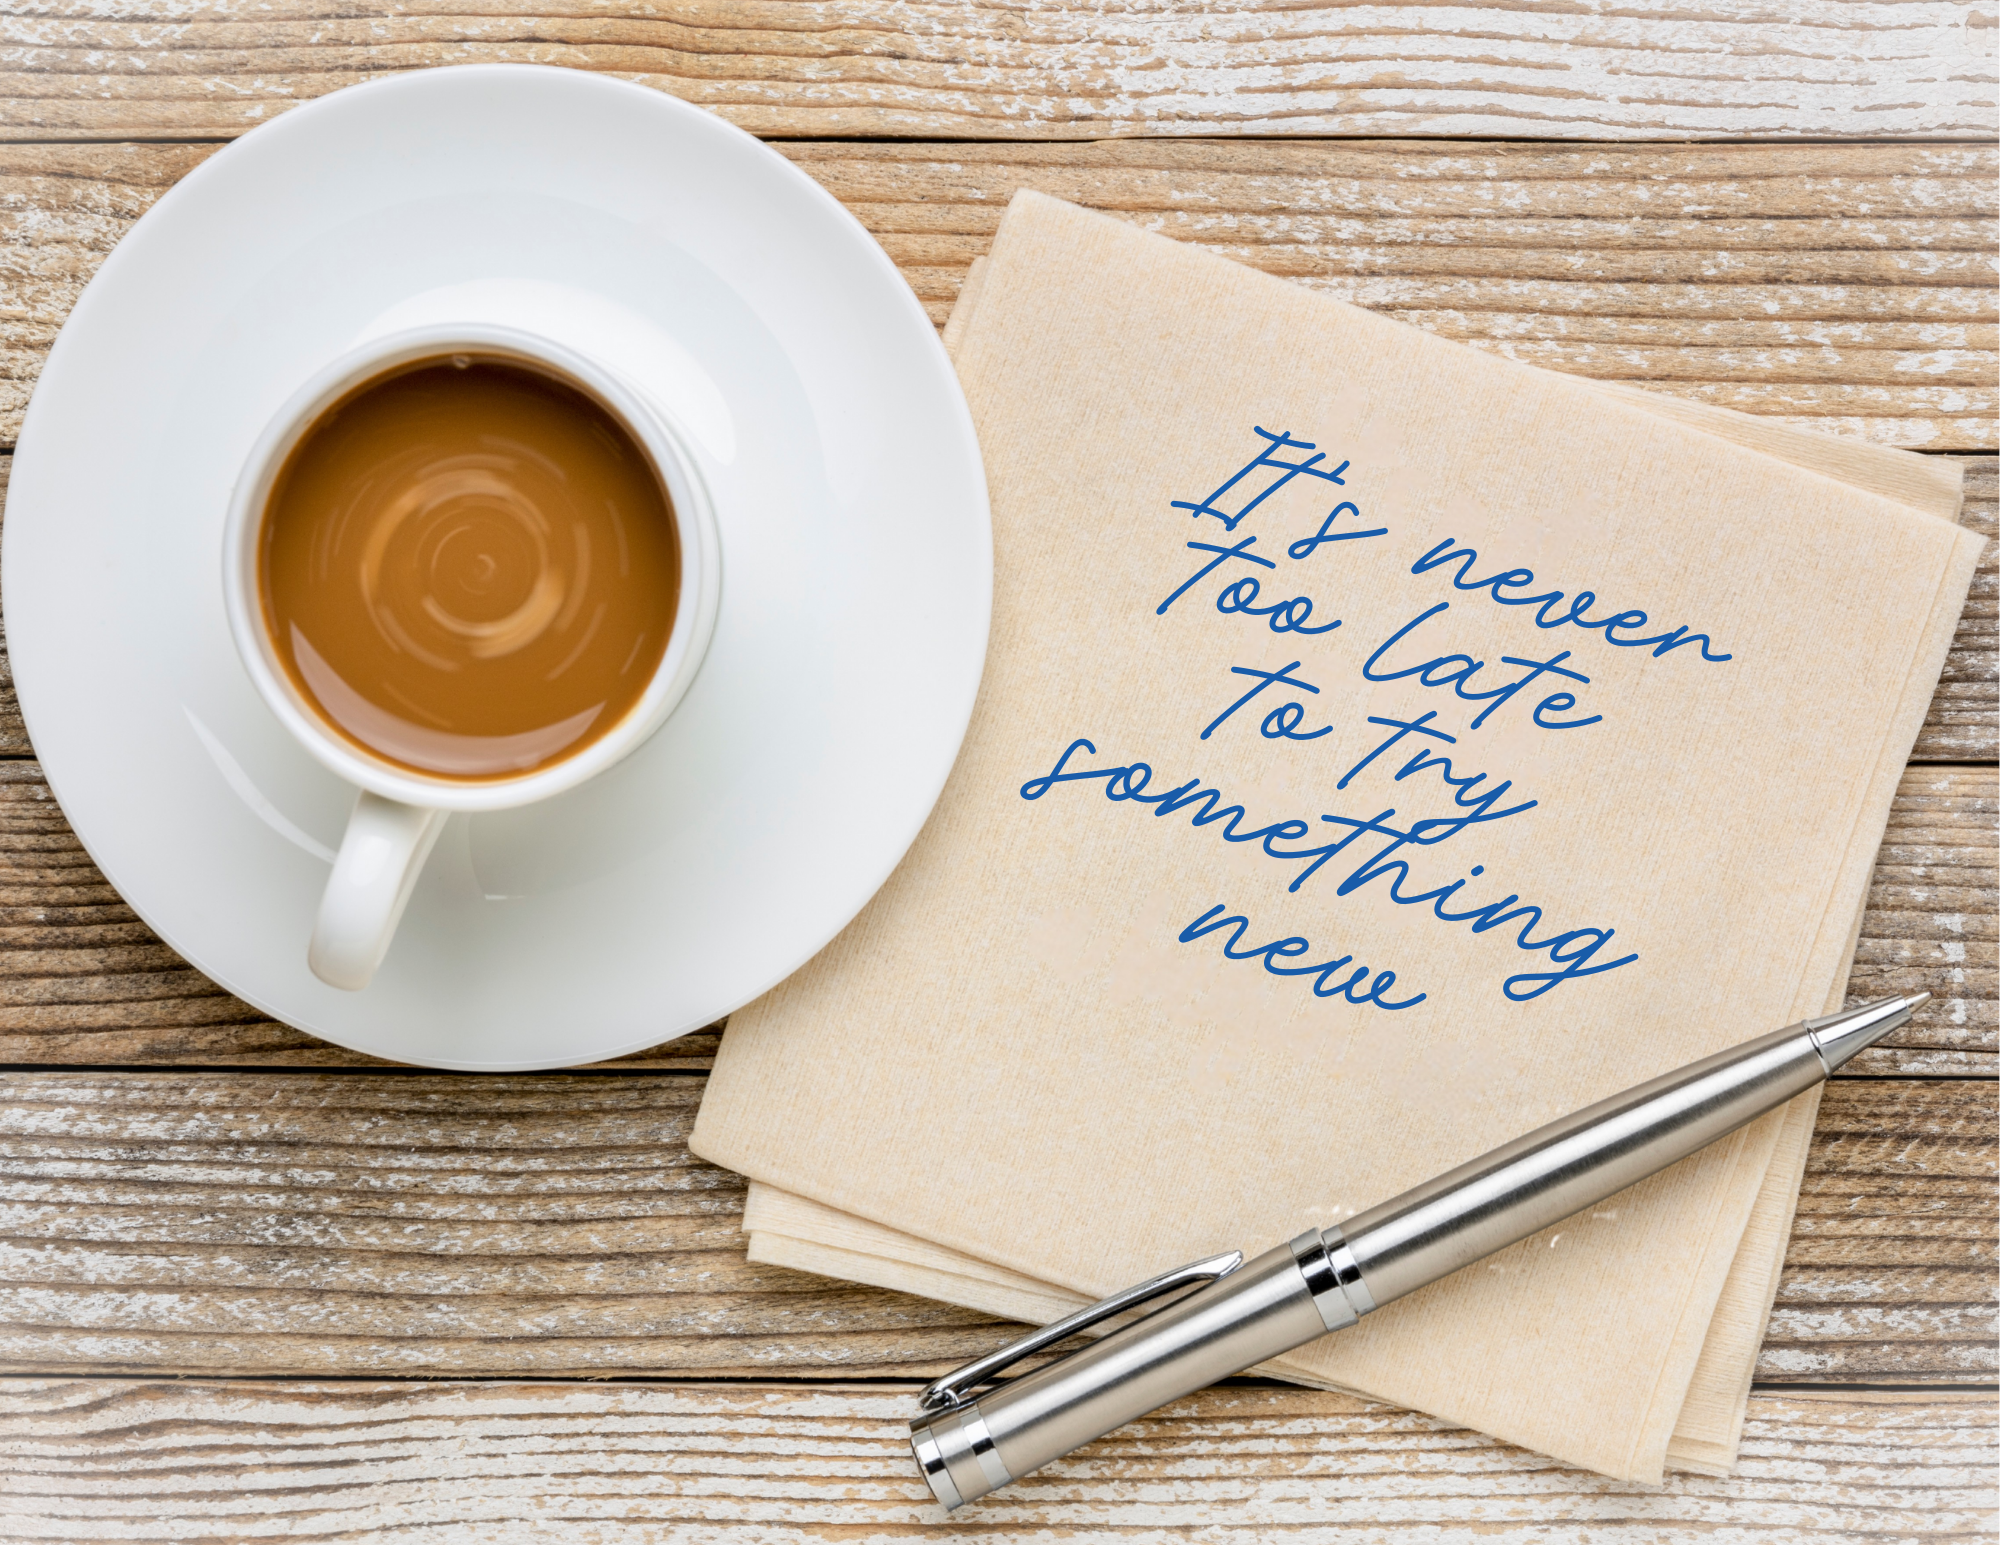 It's never
too late
to try
something
new